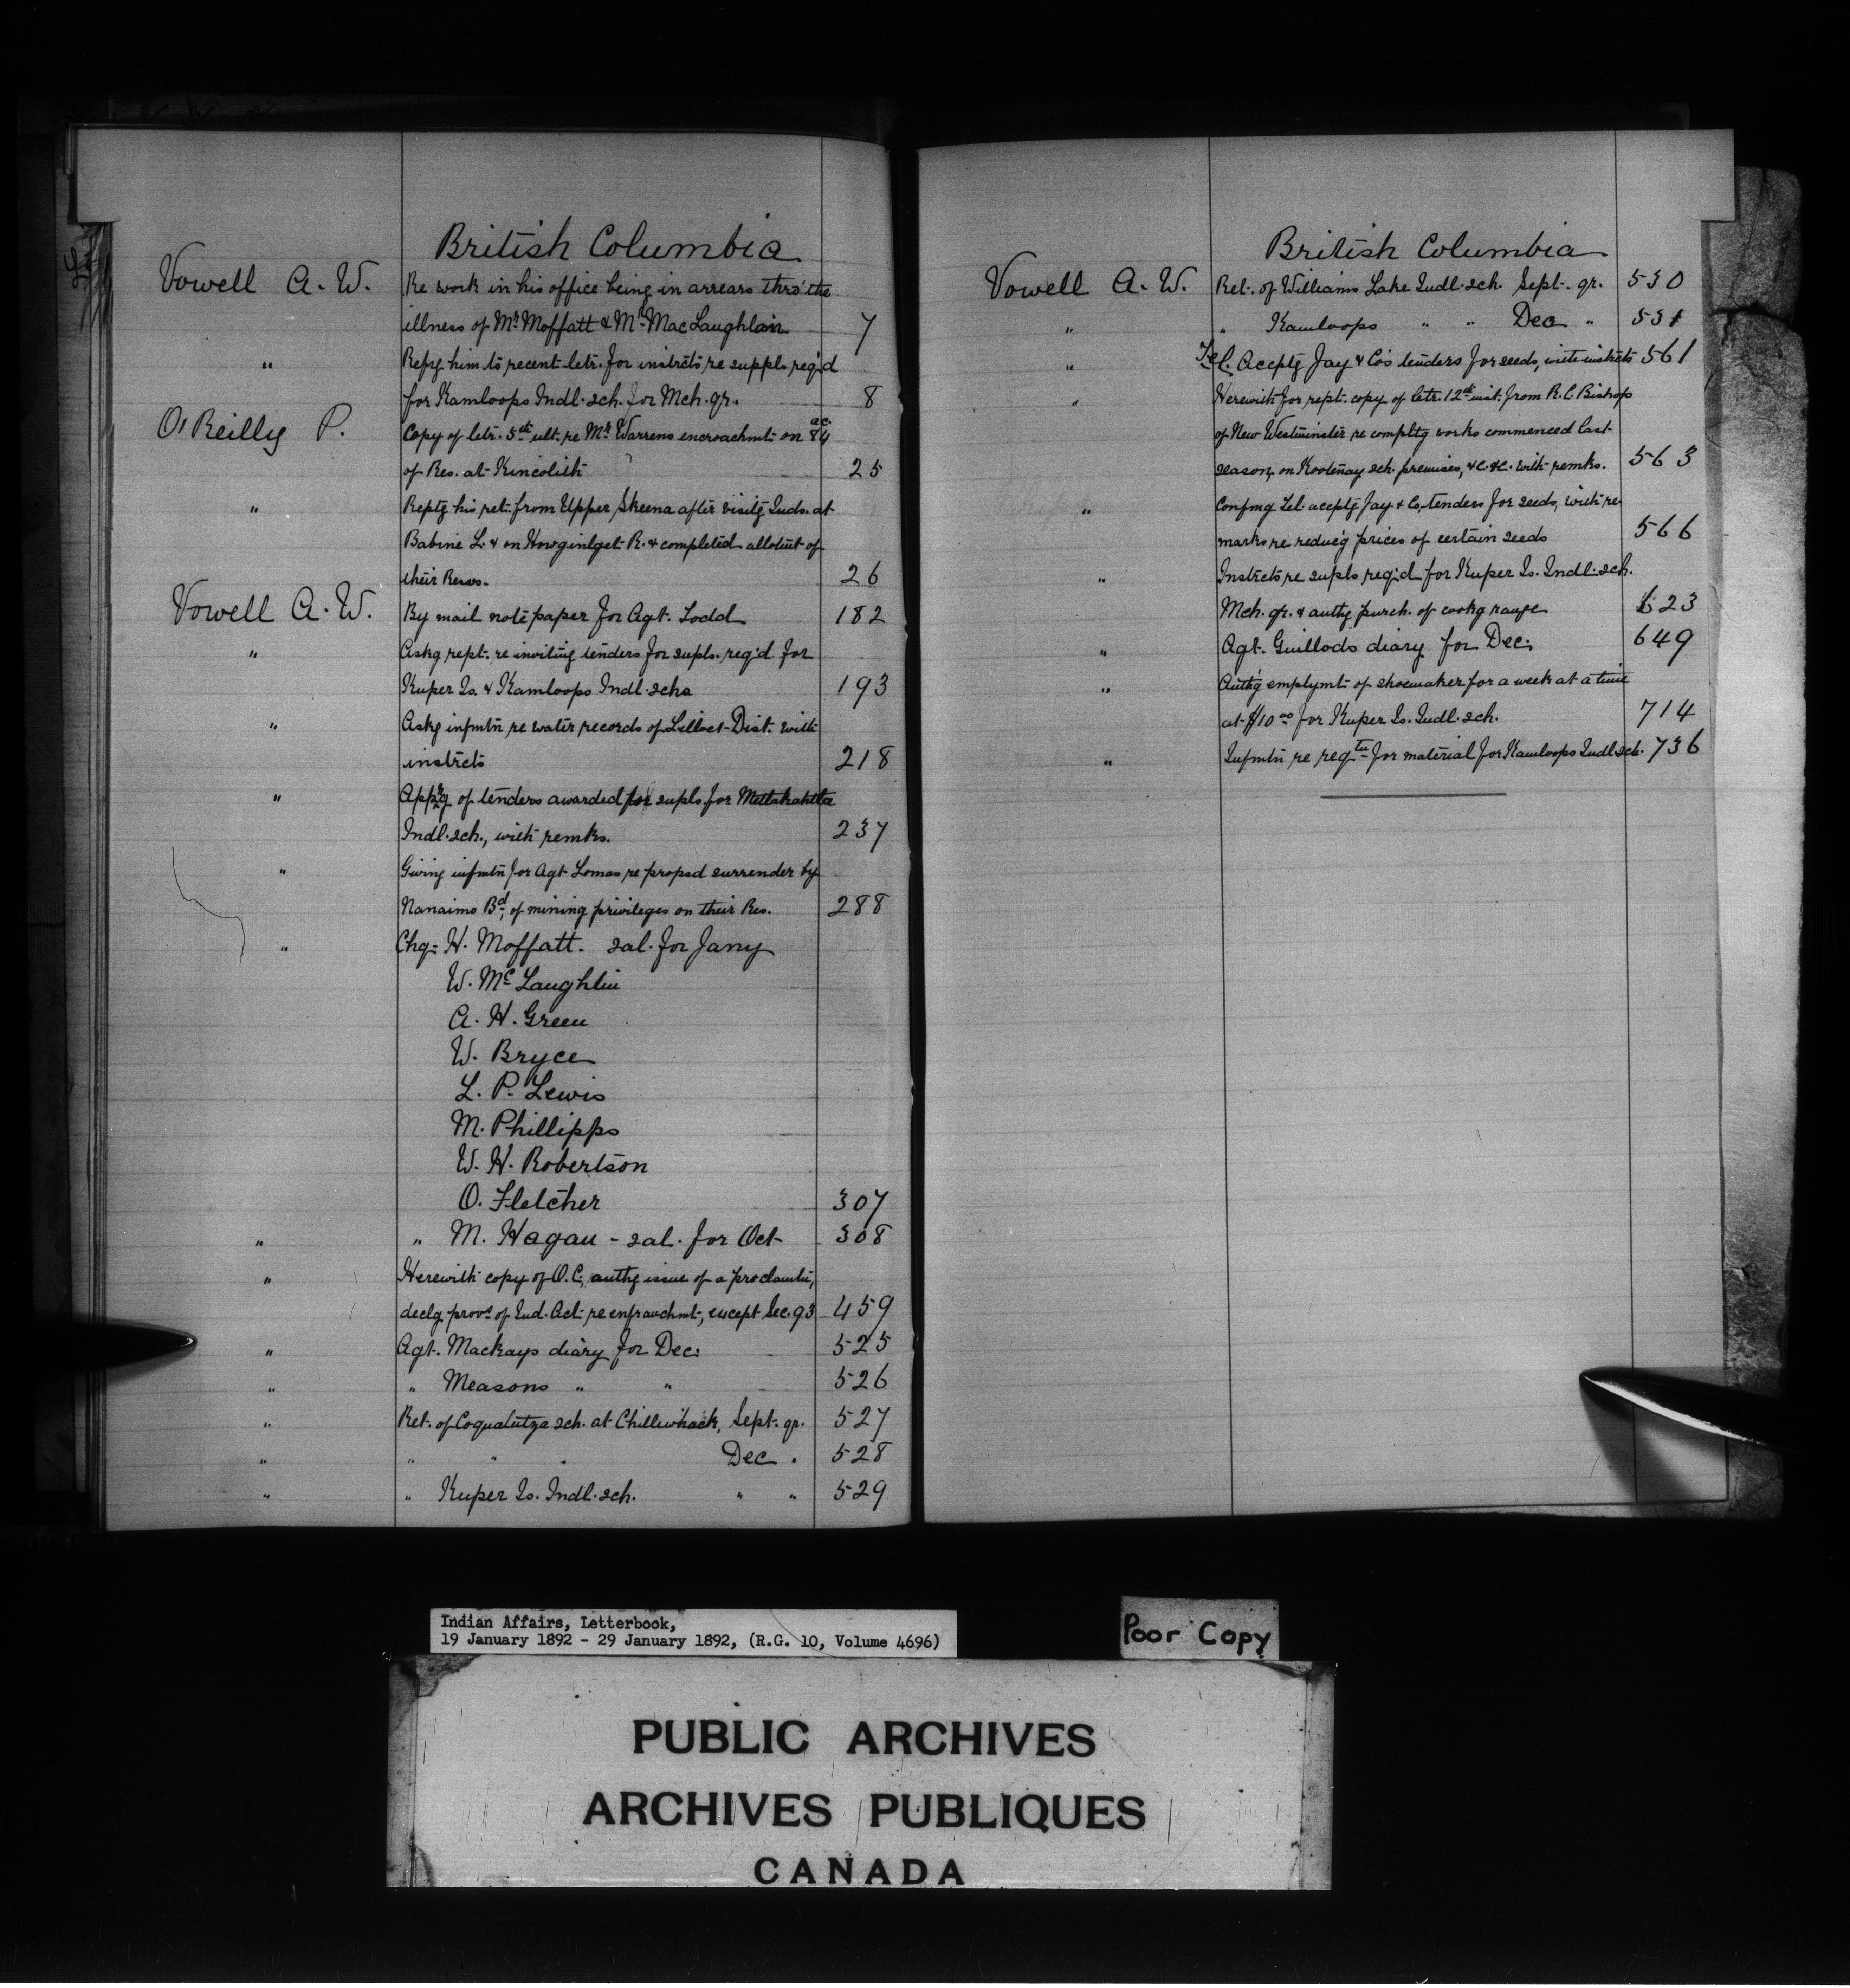 British Columbia
Vowell A. W. Re work in his office being in arrears thro' the
illness of Mr. Moffatt & Mr. MacLaughlan 7
" Refrg him to recent letr. for instrcts re suppls req'd
for Kamloops Indl. sch. for Mch. qr. 8
O'Reilly P. Copy of letr. 5th ult. re Mr. Warrens encroachmt on 84 ac.
of Res. at Kincolith 25
" Reptg his ret. from Upper Skeena after visitg Inds. at
Babine L. & on Howginlget R. & completed allotmt of
their Reses. 26
Vowell A. W. By mail note paper for Agt. Todd 182
" Askg rept. re inviting tenders for supls. req'd for
Kuper Is. & Kamloops Indl. schs 193
" Askg infmtn re water records of Lilloet Dist. with
instrcts 218
" Apprg of tenders awarded for supls for Metlakahtla
Indl. sch., with remks. 237
" Giving infmtn for Agt Lomas re propsd surrender by
Nanaimo Bd, of mining privileges on their Res. 288
" Chq- H. Moffatt. sal. for Jany
W. McLaughlin
A. H. Green
W. Bryce
L. P. Lewis
M. Phillipps
W. H. Robertson
O. Fletcher 307
" " M. Hagan - sal. for Oct 308
" Herewith copy of O.C. authg issue of a proclamtn,
declg provs of Ind. Act re enfranchmt, except Sec. 93 459
" Agt. Mackays diary for Dec. 525
" " Measons " " 526
" Ret. of Coqualutza sch. at Chilliwhack, Sept. qr. 527
" " " " Dec " 528
" " Kuper Is. Indl. sch. " " 529
British Columbia
Vowell A. W. Ret. of Williams Lake Indl. sch. Sept. qr. 530
" " Kamloops " " Dec " 531
" Tel. Acceptg Jay & Co's tenders for seeds, with instrcts 561
" Herewith for rept. copy of letr. 12th inst. from R.C. Bishop
of New Westminster re compltg works commenced last
season, on Kootenay sch. premises, &c. &c. with remks. 563
" Confmg Tel. acceptg Jay & Co, tenders for seeds, with re-
marks re reduc'g prices of certain seeds 566
" Instrcts re supls req'd for Kuper Is. Indl. sch.
Mch. qr. & authg purch. of cookg range 623
" Agt. Guillods diary for Dec. 649
" Authg emplymt of shoemaker for a week at a time
at $10 00 for Kuper Is. Indl. sch. 714
" Infmtn re reqtn for material for Kamloops Indl sch. 736
Indian Affairs, Letterbook,
19 January 1892 - 29 January 1892, (R.G. 10, Volume 4696)
Poor Copy
PUBLIC ARCHIVES
ARCHIVES PUBLIQUES
CANADA